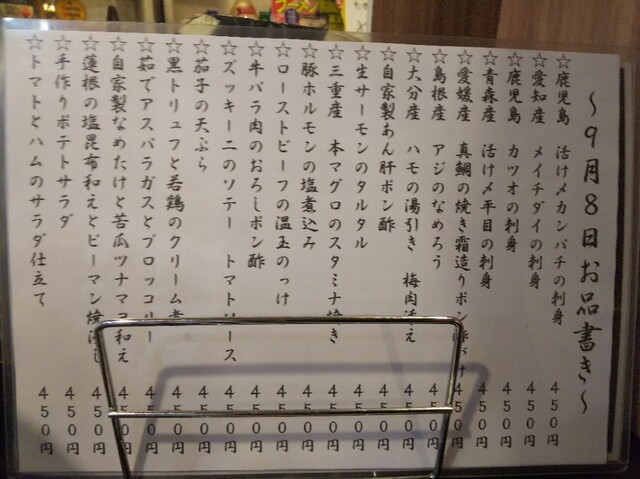 ～9月8日お品書き～
☆鹿児島 活け〆カンパチの刺身 450円
☆愛知産 メイチダイの刺身 450円
☆鹿児島 カツオの刺身 450円
☆青森産 活け〆平目の刺身 450円
☆愛媛産 真鯛の焼き霜造りポン酢がけ 450円
☆島根産 アジのなめろう 450円
☆大分産 ハモの湯引き 梅肉添え 450円
☆自家製あん肝ポン酢 450円
☆生サーモンのタルタル 450円
☆三重産 本マグロのスタミナ焼き 450円
☆豚ホルモンの塩煮込み 450円
☆ローストビーフの温玉のっけ 450円
☆牛バラ肉のおろしポン酢 450円
☆ズッキーニのソテー トマトソース 450円
☆茄子の天ぷら 450円
☆黒トリュフと若鶏のクリーム煮 450円
☆茹でアスパラガスとブロッコリー 450円
☆自家製なめたけと苦瓜ツナマヨ和え 450円
☆蓮根の塩昆布和えとピーマン焼浸し 450円
☆手作りポテトサラダ 450円
☆トマトとハムのサラダ仕立て 450円